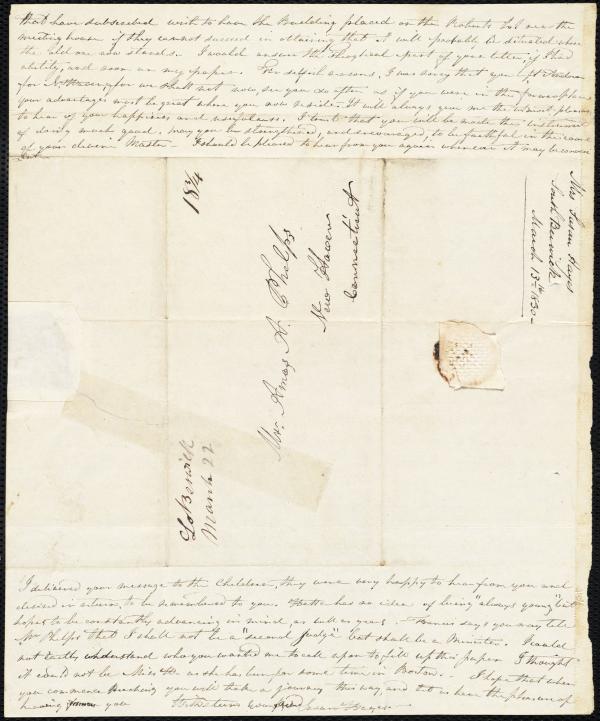 that have subscribed wish to have the Building placed on the
meetinghouse if they cannot succeed in obtaining that it will probably be situated where
the Old one now stands. I would answer the Theological part of your letter, if I had
ability, and room on my paper. For selfish reasons, I was sorry that you left Andover
for N. Haven, for we shall not now see you so often as if you were in the former place
your advantages must be great where you now reside. It will always give me the sincerest pleasure
to hear of your happiness, and usefulness. I trust that you will be made the instrument
of doing much good. may you be strengthened, and encouraged, to be faithful in the cause
of your divine Master – I should be pleased to hear from you again whenever it may be conven
ient
18¾
Mr. Amos A. Phelps
New Haven
Connecticut
So Berwick
March 22
Mrs Susan Hayes
South Berwick
March 13th 1830–
I delivered your message to the Children, they were very happy to hear from you and
desired in return, to be remembered to you. has no idea of being "always young" but
hopes to be constantly advancing in mind, as well as years – Francis says you may tell
Mr Phelps that I shall not be a "second Judge" but shall be a Minister. I could
not exactly understand who you wanted me to call upon to fill up this paper I thought
it could not be Miss as she has been for some time in Boston. – I hope that when
you commence Preaching you will take a journey this way, and let us hear the pleasure of
hearing you With esteem your friend Susan Hayes